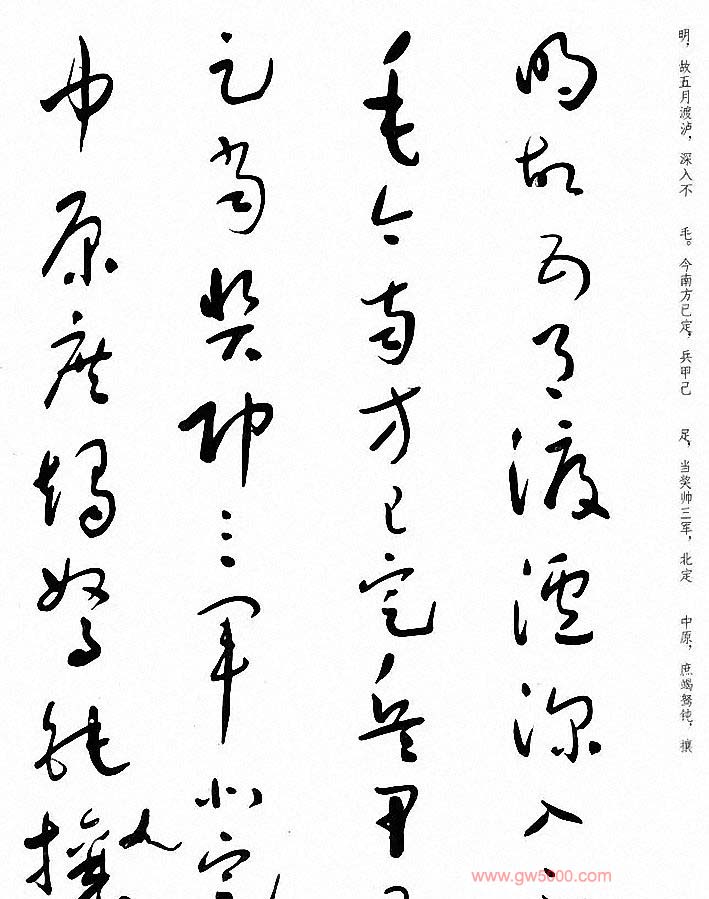 明，故五月渡泸，深入不　毛。今南方已定，兵甲己　足，当奖帅三军，北定　中原，庶竭驽钝，攘
明故五月渡瀘深入
毛今南方已定兵甲
足當奬帥三軍北定
中原庶竭駑鈍攘
www.gw5000.com